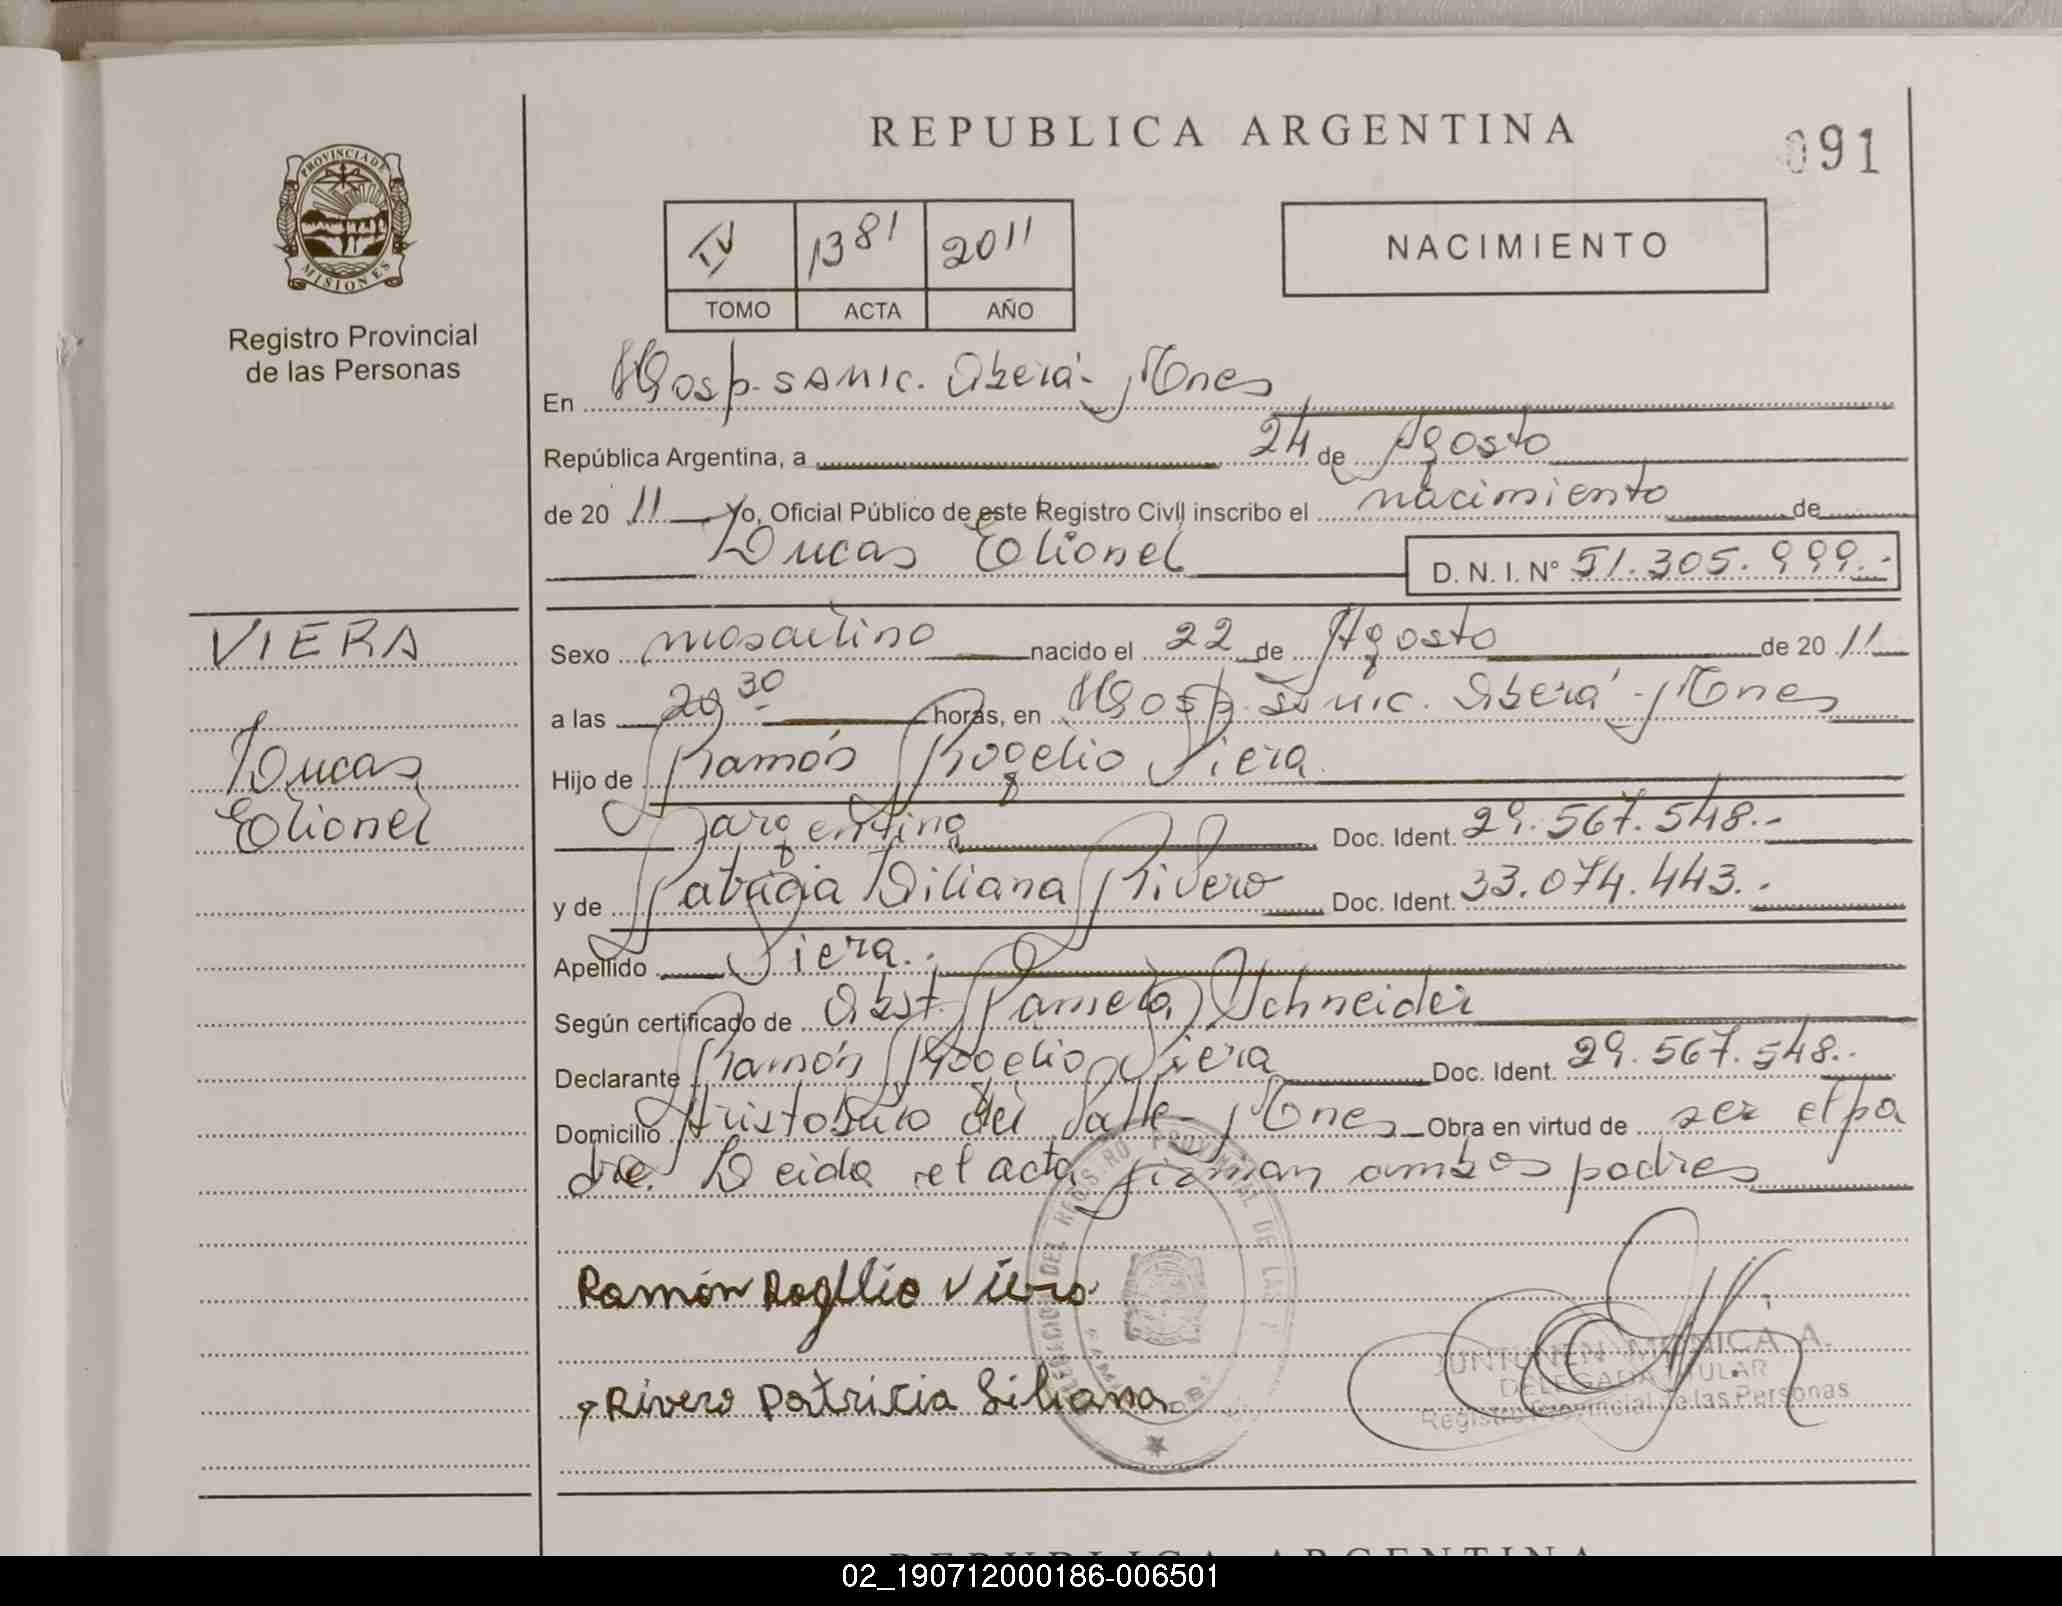 REPUBLICA ARGENTINA
091
PROVINCIA DE
MISIONES
Registro Provincial
de las Personas
IV 1381 2011
TOMO ACTA AÑO
NACIMIENTO
En Hosp. SAMIC. Oberá - Mnes
República Argentina, a 24 de Agosto
de 20 11 Yo, Oficial Público de este Registro Civil inscribo el nacimiento de
Lucas Elionel D. N. I. N° 51.305.999.-
VIERA
Lucas
Elionel
Sexo masculino nacido el 22 de Agosto de 20 11
a las 20 30 horas, en Hosp. Samic. Oberá - Mnes
Hijo de Ramón Rogelio Viera
argentino Doc. Ident. 29.567.548.-
y de Patricia Liliana Rivero Doc. Ident. 33.074.443.-
Apellido Viera.-
Según certificado de Obst. Pamela Schneider
Declarante Ramón Rogelio Viera Doc. Ident. 29.567.548.-
Domicilio Aristobulo del Valle - Mnes Obra en virtud de ser el pa
dre. Leida el acta firman ambos padres
Ramón Rogelio Viera
Rivero Patricia Liliana
JUNTUNEN MONICA A.
DELEGADA TITULAR
Registro Provincial de las Personas
REPUBLICA ARGENTINA
02_190712000186-006501